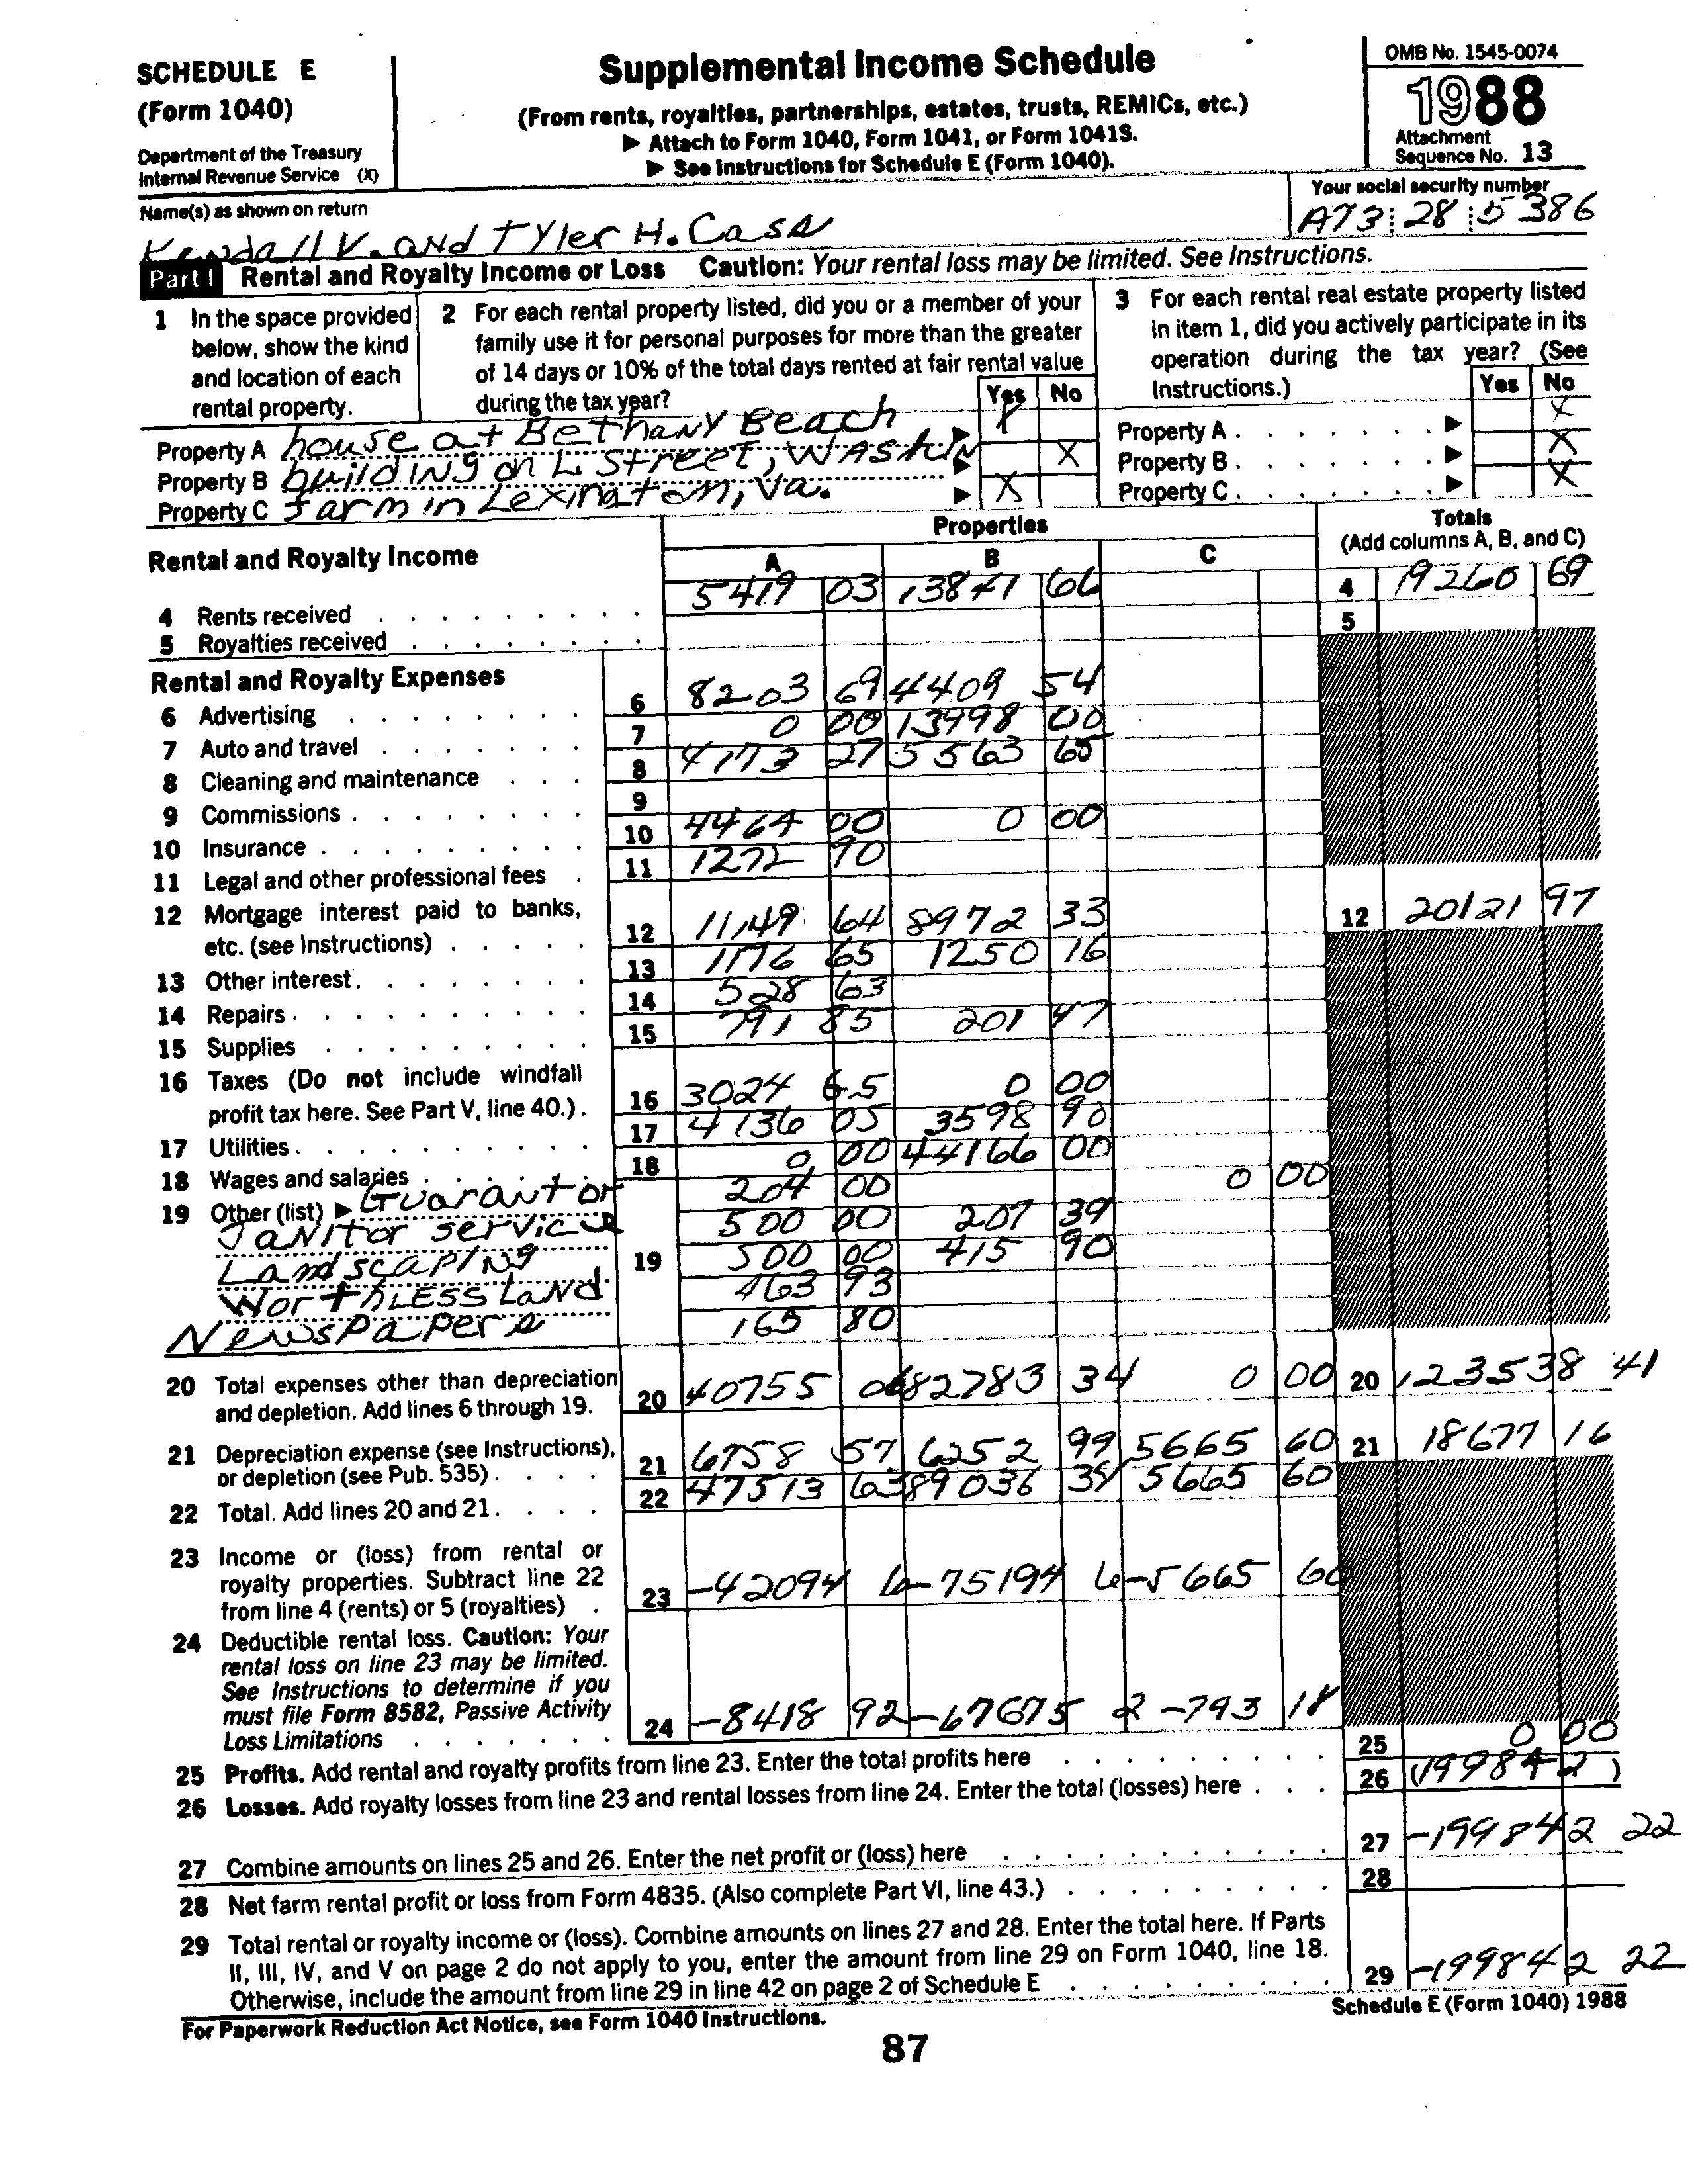 SCHEDULE E
(Form 1040)
Department of the Treasury
Internal Revenue Service (X)
Supplemental Income Schedule
(From rents, royalties, partnerships, estates, trusts, REMICs, etc.)
▶ Attach to Form 1040, Form 1041, or Form 1041S.
▶ See Instructions for Schedule E (Form 1040).
OMB No. 1545-0074
1988
Attachment
Sequence No. 13
Name(s) as shown on return
Kendall V. and Tyler H. Case
Your social security number
A73 28 5386
Part I Rental and Royalty Income or Loss Caution: Your rental loss may be limited. See Instructions.
1 In the space provided
below, show the kind
and location of each
rental property.
2 For each rental property listed, did you or a member of your
family use it for personal purposes for more than the greater
of 14 days or 10% of the total days rented at fair rental value
during the tax year?
Yes No
3 For each rental real estate property listed
in item 1, did you actively participate in its
operation during the tax year? (See
Instructions.)
Yes No
Property A house at Bethany Beach ▶ X Property A . . . . . . . ▶ X
Property B building on L Street, Washin ▶ X Property B . . . . . . . ▶ X
Property C farm in Lexington, Va. ▶ X Property C . . . . . . . ▶ X
Rental and Royalty Income
Properties
A B C
Totals
(Add columns A, B, and C)
4 Rents received 5419 03 13841 66 4 19260 69
5 Royalties received 5
Rental and Royalty Expenses
6 Advertising 6 8203 69 4409 54
7 Auto and travel 7 0 00 13998 00
8 Cleaning and maintenance 8 4173 27 5563 65
9 Commissions 9
10 Insurance 10 4464 00 0 00
11 Legal and other professional fees 11 1272 90
12 Mortgage interest paid to banks,
etc. (see Instructions) 12 11149 64 8972 33 12 20121 97
13 Other interest 13 1176 65 1250 16
14 Repairs 14 528 63
15 Supplies 15 791 85 201 47
16 Taxes (Do not include windfall
profit tax here. See Part V, line 40.) 16 3024 65 0 00
17 Utilities 17 4136 05 3598 90
18 Wages and salaries 18 0 00 44166 00
19 Other (list) ▶ Guarantor 204 00 0 00
Janitor service 500 00 207 39
Landscaping 19 500 00 415 90
Worthless Land 463 93
Newspapers 165 80
20 Total expenses other than depreciation
and depletion. Add lines 6 through 19. 20 40755 06 82783 34 0 00 20 123538 41
21 Depreciation expense (see Instructions),
or depletion (see Pub. 535) 21 6758 57 6252 99 5665 60 21 18677 16
22 Total. Add lines 20 and 21. 22 47513 63 89036 34 5665 60
23 Income or (loss) from rental or
royalty properties. Subtract line 22
from line 4 (rents) or 5 (royalties) 23 -42094 6 -75194 6 -5665 60
24 Deductible rental loss. Caution: Your
rental loss on line 23 may be limited.
See Instructions to determine if you
must file Form 8582, Passive Activity
Loss Limitations 24 -8418 92 -67675 2 -793 18
25 Profits. Add rental and royalty profits from line 23. Enter the total profits here 25 0 00
26 Losses. Add royalty losses from line 23 and rental losses from line 24. Enter the total (losses) here 26 (199842)
27 Combine amounts on lines 25 and 26. Enter the net profit or (loss) here 27 -199842 22
28 Net farm rental profit or loss from Form 4835. (Also complete Part VI, line 43.) 28
29 Total rental or royalty income or (loss). Combine amounts on lines 27 and 28. Enter the total here. If Parts
II, III, IV, and V on page 2 do not apply to you, enter the amount from line 29 on Form 1040, line 18.
Otherwise, include the amount from line 29 in line 42 on page 2 of Schedule E 29 -199842 22
For Paperwork Reduction Act Notice, see Form 1040 Instructions.
Schedule E (Form 1040) 1988
87